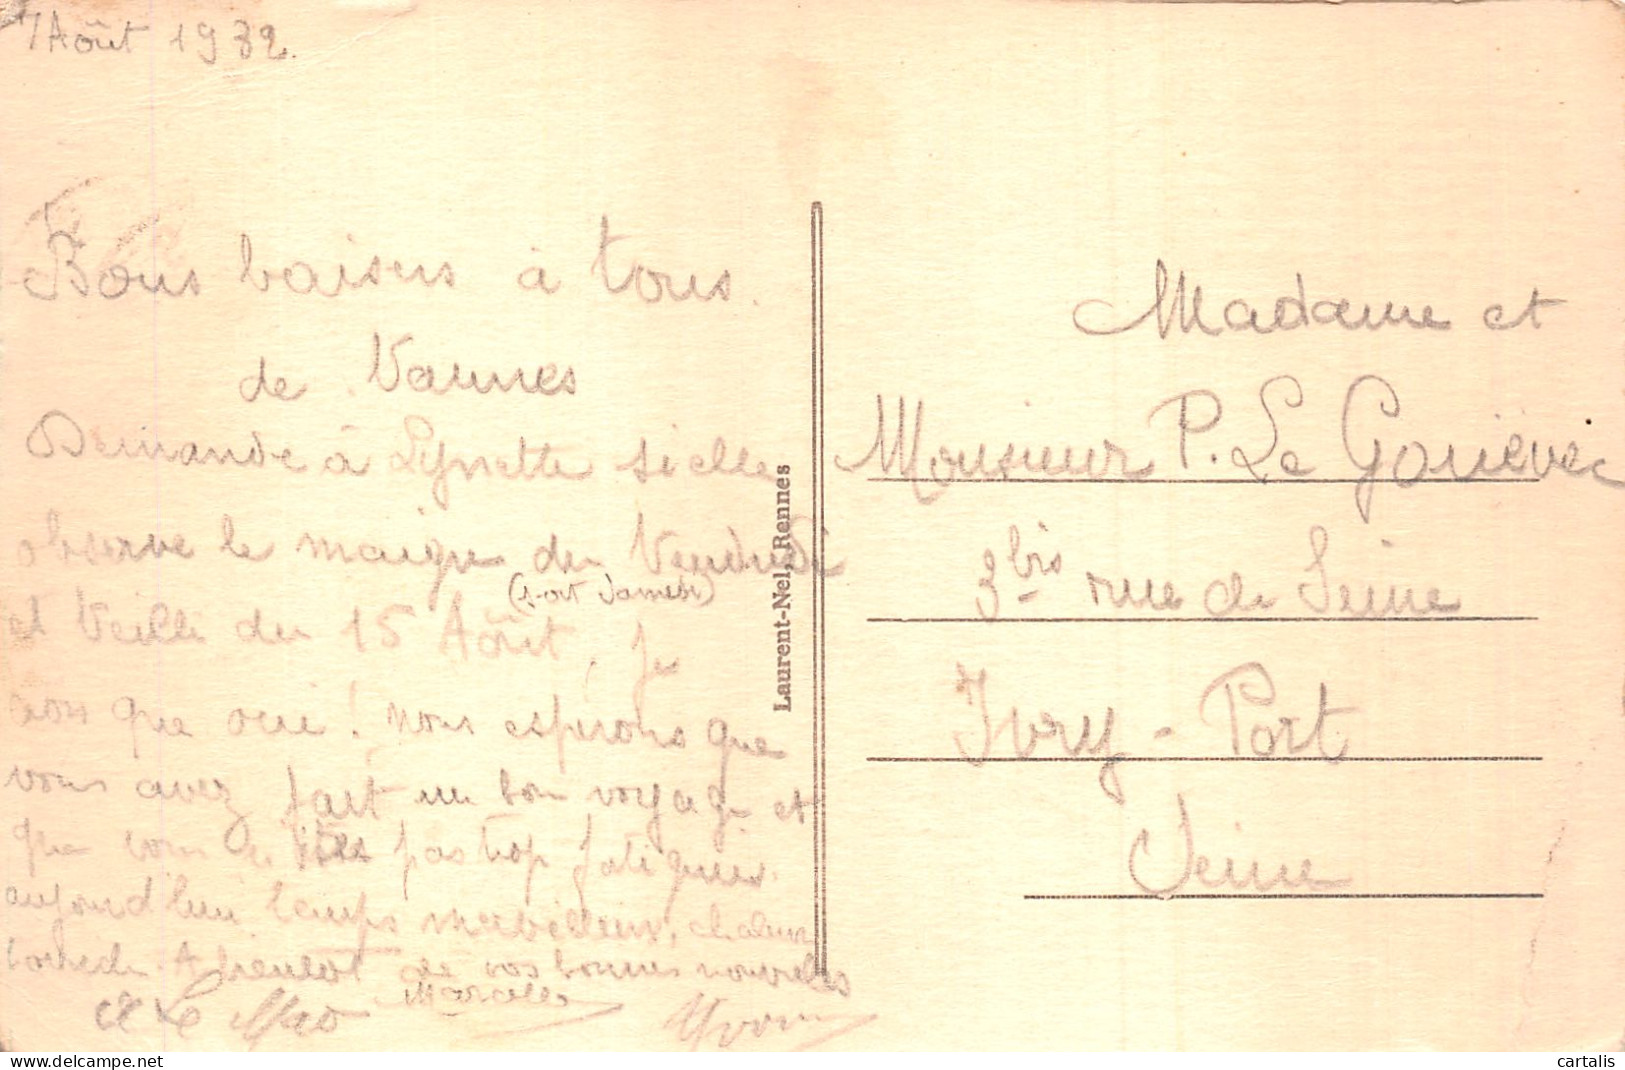 7 Août 1932.
Bons baisers à tous.
de Vannes
Demande à Lynette si elle
observe le maigre du Vendredi
(s-ort Samedi)
et Veille du 15 Août, je
crois que oui ! nous espérons que
vous avez fait un bon voyage et
que vous n'êtes pas trop fatigués.
aujourd'hui temps merveilleux, chaleur
torride. A bientôt de vos bonnes nouvelles
Le Marcelle Yvonne
Laurent-Nel, Rennes
Madame et
Monsieur P. Le Gouëvec
3 bis rue de Seine
Ivry-Port
Seine
cartalis